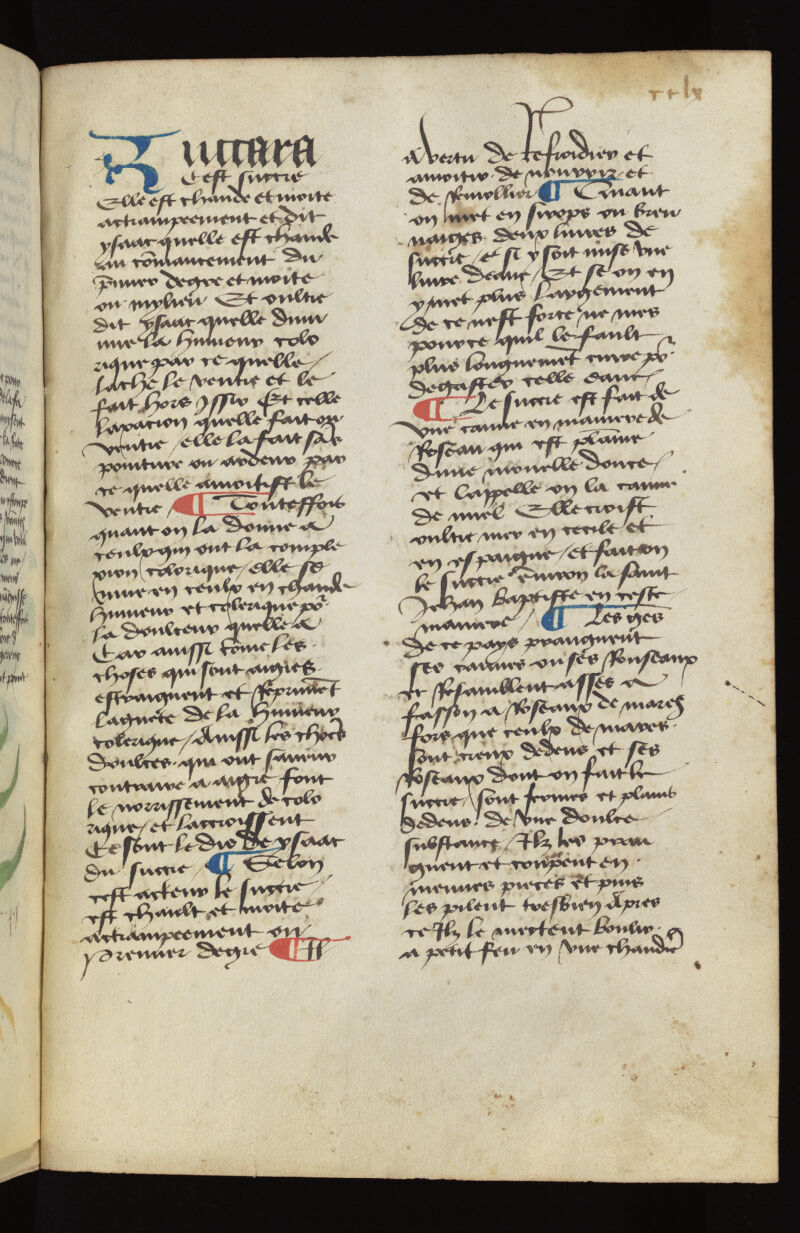 cclx
Zuccara
Cest succre
Elle est chaude et moite
actrampeement et dit
ysaac quelle est chaude
au cōmancement du
p̄mier degre et moite
ou mylieu Et oultre
dit ysaac quelle dimi
nue la humeur colo
rique par ce quelle
lache le ventre et le
fait hors issir Et celle
laxacion quelle fait ou
ventre elle la fait sās
pointure ou ardeur par
ce quelle amoitist le
ventre ¶ Touteffois
quant on la donne a
ceulx qui ont la comple
xion colorique elle se
mue en ceulx en chaude
humeur et colerique po͛
la doulceur quelle a
Car aussi cōme les
choses qui sont aigres
estraignent et Reprimēt
lagueté de la humeur
colerique Aussi les choses
doulces qui ont saveur
contraire a aigre font
le norrissement de colo
rique et lacroissent
Ce sont le dis de ysaac
du succre ¶ Selon
cest acteur le succre
est chault et moite
actrampeement ou
Premier degre ¶ Il
A vertu de Refroidier et
amoitir de nourrir et
de Remollier ¶ Quant
on met en sirops ou breu
vaiges deux livres de
succre et si y soit mise vne
livre deaue Et se on en
y met plus largement
de ce nest force ne mes
pource quil le fault
plus longuemēt cuire po͛
degaster celle eaue
¶ Le succre est fait de
vne canne en maniere de
Roseau qui est plaine
dune mouelle doulce
et lappelle on la canne
de miel Elle croist
oultre mer en cecile et
en espaigne et fait on
le succre ēuiron la saint
Jehan baptiste en ceste
maniere ¶ Les gēs
de ce pays prangnent
ses cannes ou ses Rouseaux
et Resamblent asses a
fasson a Roseaux de mares
fors que ceulx de mares
sont creux dedens et ses
Roseaux dont on fait le
succre sont fermes et plains
dedens de vne doulce
substance Ilz les pran
gnent et coupent en
menues pieces et puis
les pilent tresbien Apres
ce Ilz le mectent boulir
a petit feu en vne chaudie͛